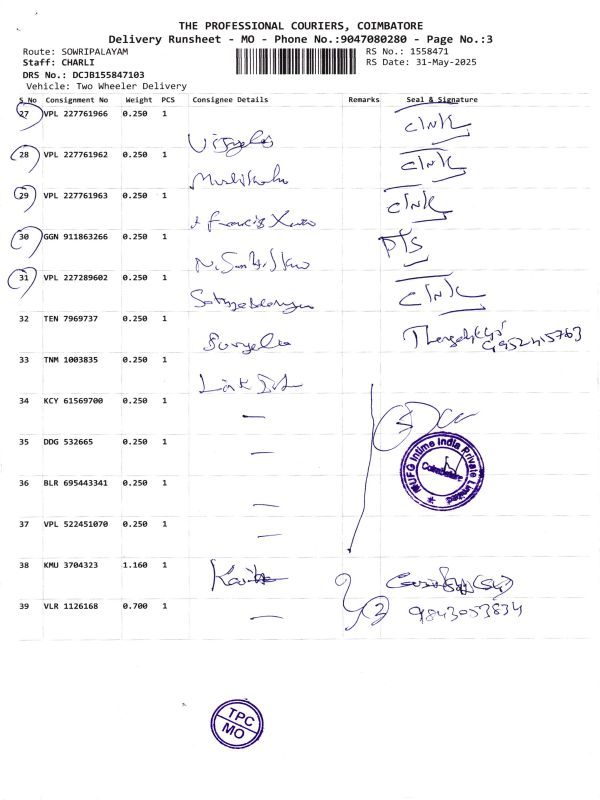 THE PROFESSIONAL COURIERS, COIMBATORE
Delivery Runsheet - MO - Phone No.:9047080280 - Page No.:3
Route: SOWRIPALAYAM RS No.: 1558471
Staff: CHARLI RS Date: 31-May-2025
DRS No.: DCJB155847103
Vehicle: Two Wheeler Delivery
S_No Consignment No Weight PCS Consignee Details Remarks Seal & Signature
27 VPL 227761966 0.250 1
28 VPL 227761962 0.250 1
29 VPL 227761963 0.250 1
Francis
30 GGN 911863266 0.250 1
31 VPL 227289602 0.250 1
32 TEN 7969737 0.250 1
33 TNM 1003835 0.250 1
Link
34 KCY 61569700 0.250 1
35 DDG 532665 0.250 1
MUFG Intime India Private Limited
Coimbatore
36 BLR 695443341 0.250 1
37 VPL 522451070 0.250 1
38 KMU 3704323 1.160 1
39 VLR 1126168 0.700 1 2 9843053834
TPC
MO